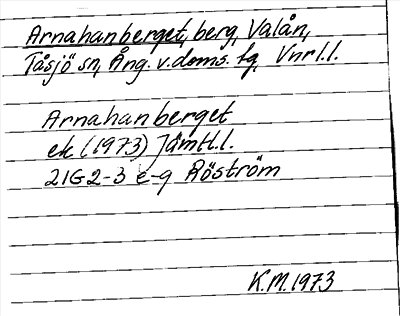 Arnahanberget, berg, Valån,
Tåsjö sn, Ång. v. doms. tg, Vnrl.l.
Arnahanberget
ek (1973) Jämtl.l.
21G2-3 e-g Röström
K.M. 1973